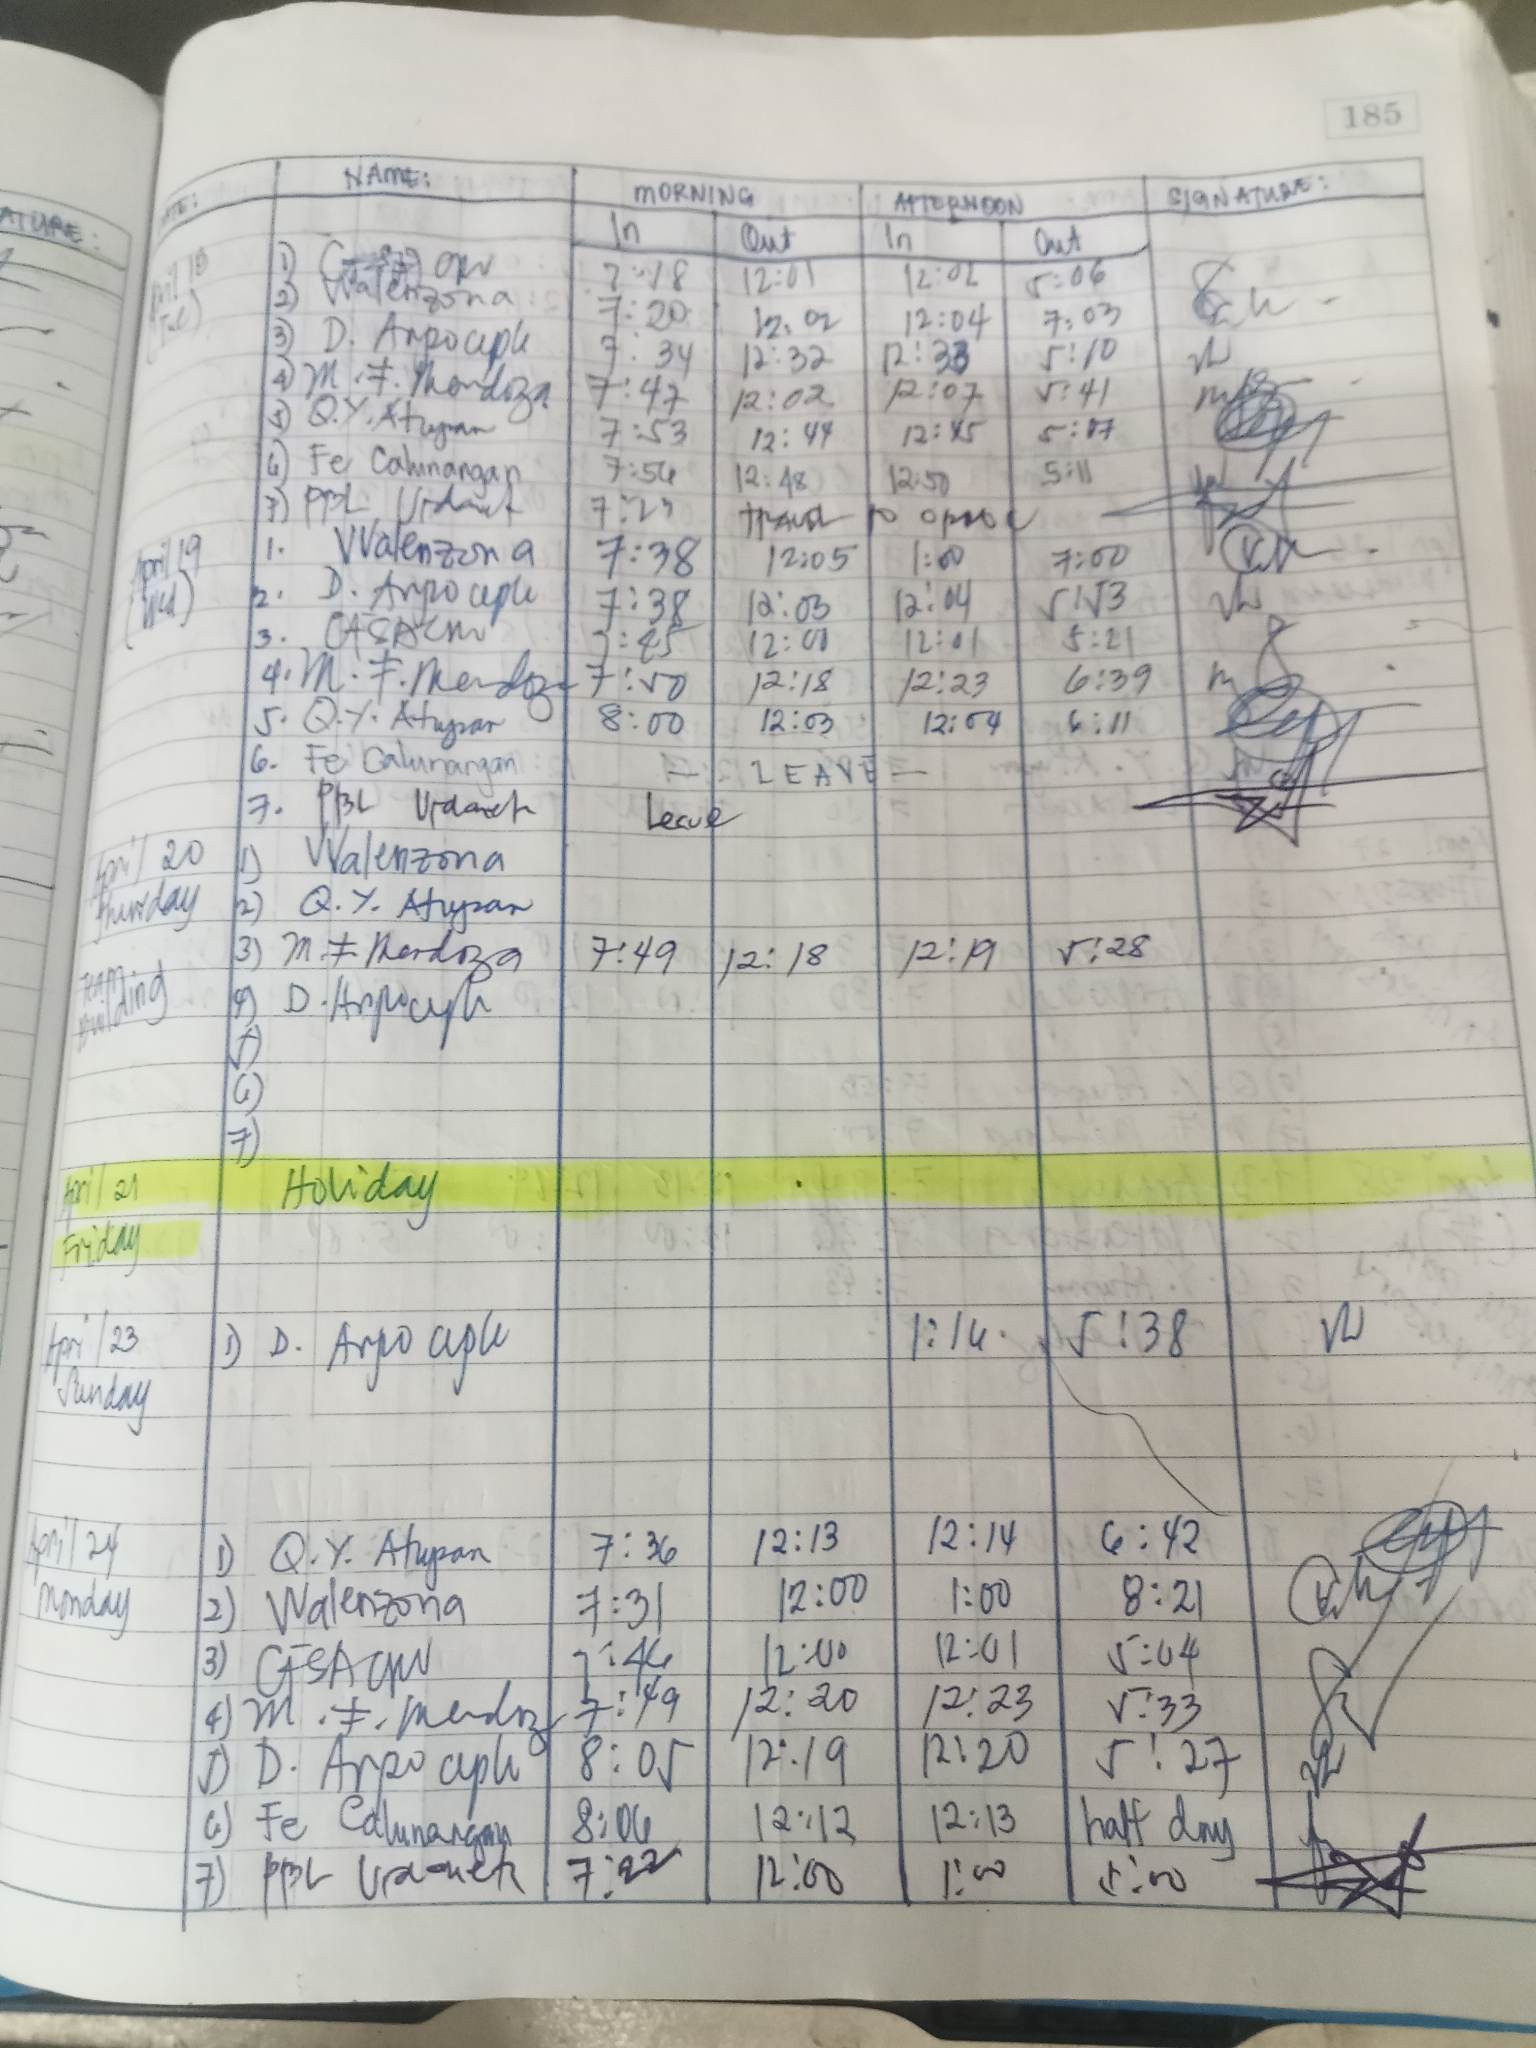 185
ATURE:
NAME: MORNING AFTERNOON SIGNATURE:
In Out In Out
April 18 1) 7:18 12:01 12:02 5:06
(Tue) 2) VValenzona 7:20 12:02 12:04 7:03
3) D. Arpo 7:34 12:32 12:33 5:10
4) M. F. Mendoza 7:47 12:02 12:07 5:41
5) Q.Y. Atupan 7:53 12:44 12:45
6) Fe Calunangan 7:56 12:48 12:50 5:11
7) PBL 7:23 travel to
April 19 1. VValenzona 7:38 12:05 1:00 7:00
(Wed) 2. D. Arpo 7:38 12:03 12:04 5:53
3. 7:45 12:00 12:01 5:21
4. M. F. Mendoza 7:50 12:18 12:23 6:39
5. Q.Y. Atupan 8:00 12:03 12:04 6:11
6. Fe Calunangan - LEAVE -
7. PBL Leave
April 20 1) VValenzona
Thursday 2) Q.Y. Atupan
3) M. F. Mendoza 7:49 12:18 12:19 5:28
Team Building 4) D. Arpo
5)
6)
7)
April 21 Holiday
Friday
April 23 1) D. Arpo 1:16 5:38
Sunday
April 24 1) Q.Y. Atupan 7:36 12:13 12:14 6:42
Monday 2) VValenzona 7:31 12:00 1:00 8:21
3) 7:46 12:00 12:01 5:04
4) M. F. Mendoza 7:49 12:20 12:23 5:33
5) D. Arpo 8:05 12:19 12:20 5:27
6) Fe Calunangan 8:06 12:12 12:13 half day
7) PBL 7:22 12:00 1:00 5:00